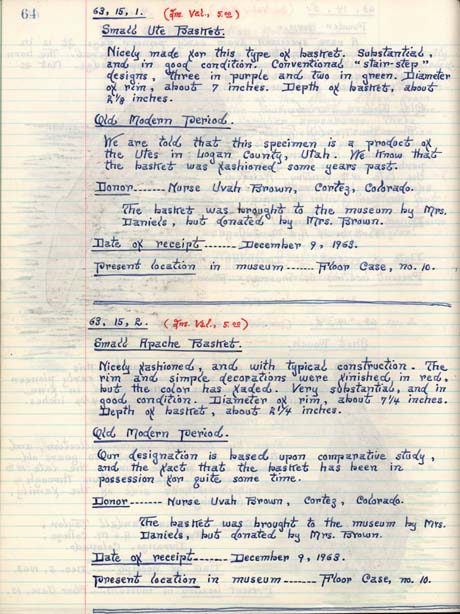 64
63, 15, 1. (Ins. Val., 5.00)
Small Ute Basket.
Nicely made for this type of basket. Substantial,
and in good condition. Conventional "stair-step"
designs, three in purple and two in green. Diameter
of rim, about 7 inches. Depth of basket, about
2 1/8 inches.
Old Modern Period.
We are told that this specimen is a product of
the Utes in Logan County, Utah. We know that
the basket was fashioned some years past.
Donor------ Nurse Uvah Brown, Cortez, Colorado.
The basket was brought to the museum by Mrs.
Daniels, but donated by Mrs. Brown.
Date of receipt ------- December 9, 1963.
Present location in museum ------ Floor Case, no. 10.
63, 15, 2. (Ins. Val., 5.00)
Small Apache Basket.
Nicely fashioned, and with typical construction. The
rim and simple decorations were finished in red,
but the color has faded. Very substantial, and in
good condition. Diameter of rim, about 7 1/4 inches.
Depth of basket, about 2 1/4 inches.
Old Modern Period.
Our designation is based upon comparative study,
and the fact that the basket has been in
possession for quite some time.
Donor ------- Nurse Uvah Brown, Cortez, Colorado.
The basket was brought to the museum by Mrs.
Daniels, but donated by Mrs. Brown.
Date of receipt------- December 9, 1963.
Present location in museum ------- Floor Case, no. 10.